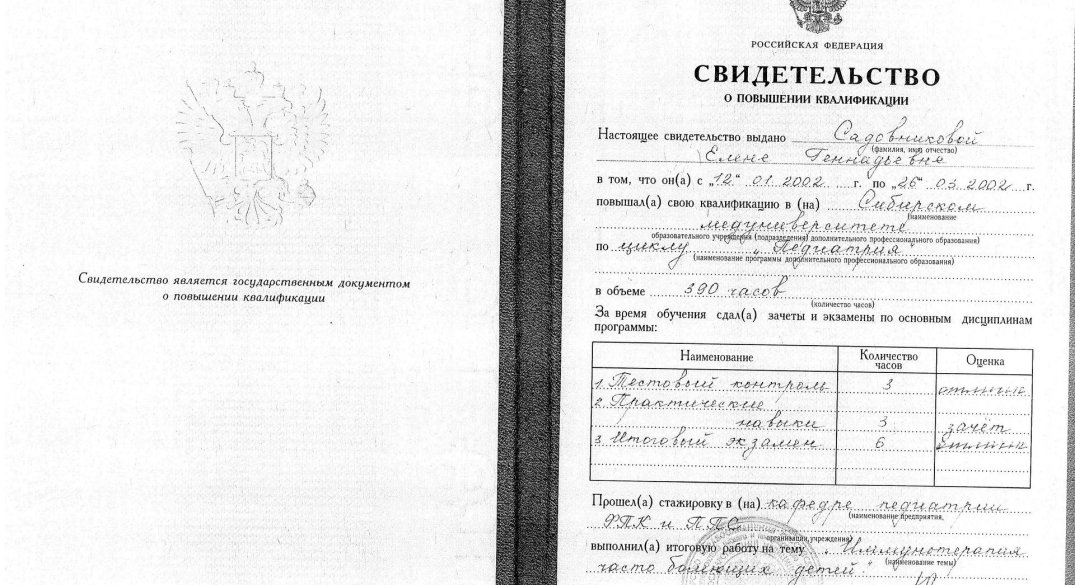 Свидетельство является государственным документом
о повышении квалификации
РОССИЙСКАЯ ФЕДЕРАЦИЯ
СВИДЕТЕЛЬСТВО
О ПОВЫШЕНИИ КВАЛИФИКАЦИИ
Настоящее свидетельство выдано Садовниковой
(фамилия, имя, отчество)
Елене Геннадьевне
в том, что он(а) с „12“ 01 2002 г. по „26“ 03 2002 г.
повышал(а) свою квалификацию в (на) Сибирском
(наименование
медуниверситете
образовательного учреждения (подразделения) дополнительного профессионального образования)
по циклу „Педиатрия“
(наименование программы дополнительного профессионального образования)
в объеме 390 часов
(количество часов)
За время обучения сдал(а) зачеты и экзамены по основным дисциплинам
программы:
Наименование Количество часов Оценка
1. Тестовый контроль 3 отлично
2. Практические
навыки 3 зачёт
3. Итоговый экзамен 6 отлично
Прошел(а) стажировку в (на) кафедре педиатрии
(наименование предприятия,
ФПК и ППС
организации, учреждения)
выполнил(а) итоговую работу на тему „Иммунотерапия
(наименование темы)
часто болеющих детей.“